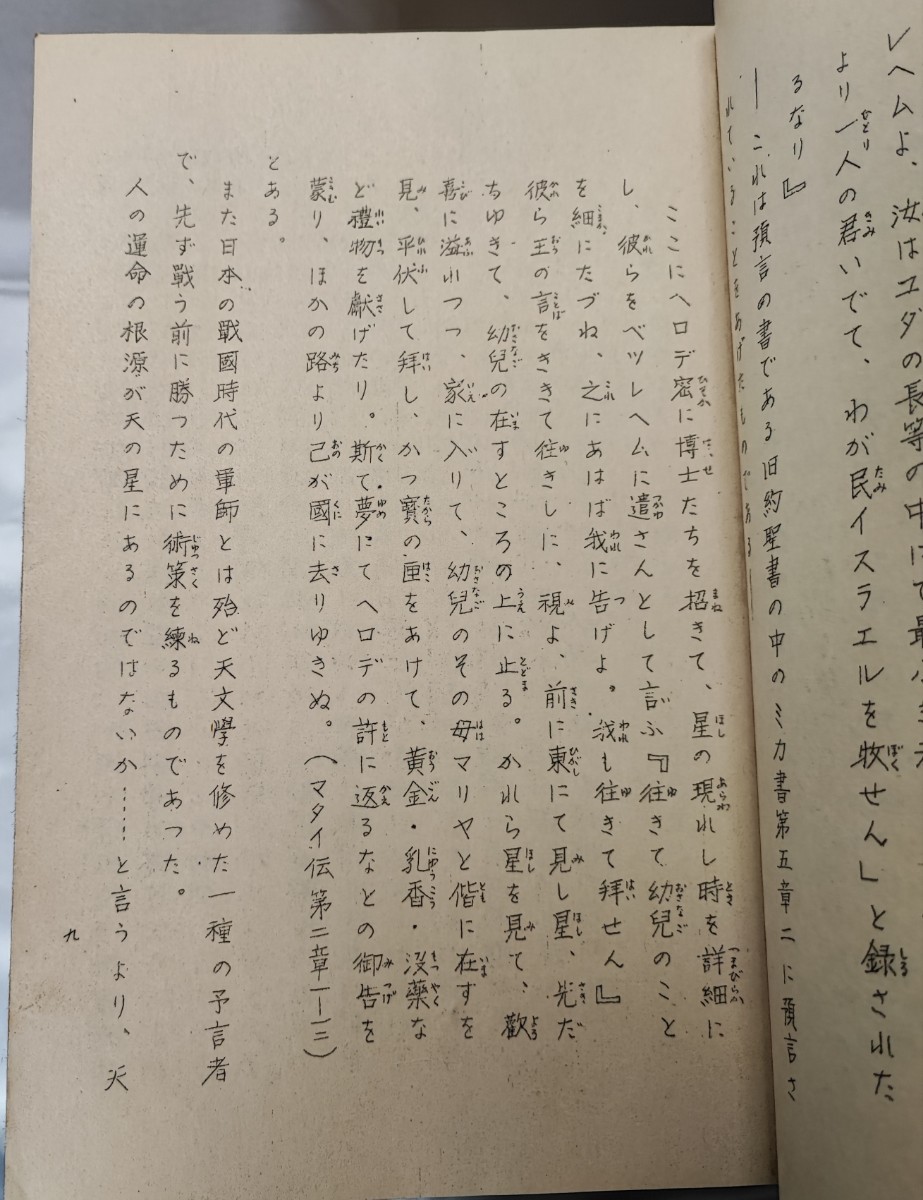 レヘムよ、汝はユダの長等の中にて最小き
より一人の君いでて、わが民イスラエルを牧せん」と録された
るなり』
――これは預言の書である旧約聖書の中のミカ書第五章二に預言さ
れていることをあげたものである――
ここにヘロデ密に博士たちを招きて、星の現れし時を詳細に
し、彼らをベツレヘムに遣さんとして言ふ『往きて幼兒のこと
を細にたづね、之にあはば我に告げよ。我も往きて拜せん』
彼ら王の言をききて往きしに、視よ、前に東にて見し星、先だ
ちゆきて、幼兒の在すところの上に止る。かれら星を見て、歡
喜に溢れつつ、家に入りて、幼兒のその母マリヤと偕に在すを
見、平伏して拜し、かつ寶の匣をあけて、黄金・乳香・沒藥な
ど禮物を獻げたり。斯て夢にてヘロデの許に返るなとの御告を
蒙り、ほかの路より己が國に去りゆきぬ。(マタイ伝第二章一ー一三)
とある。
また日本の戰國時代の軍師とは殆ど天文學を修めた一種の予言者
で、先ず戦う前に勝つために術策を練るものであった。
人の運命の根源が天の星にあるのではないか……と言うより、天
九